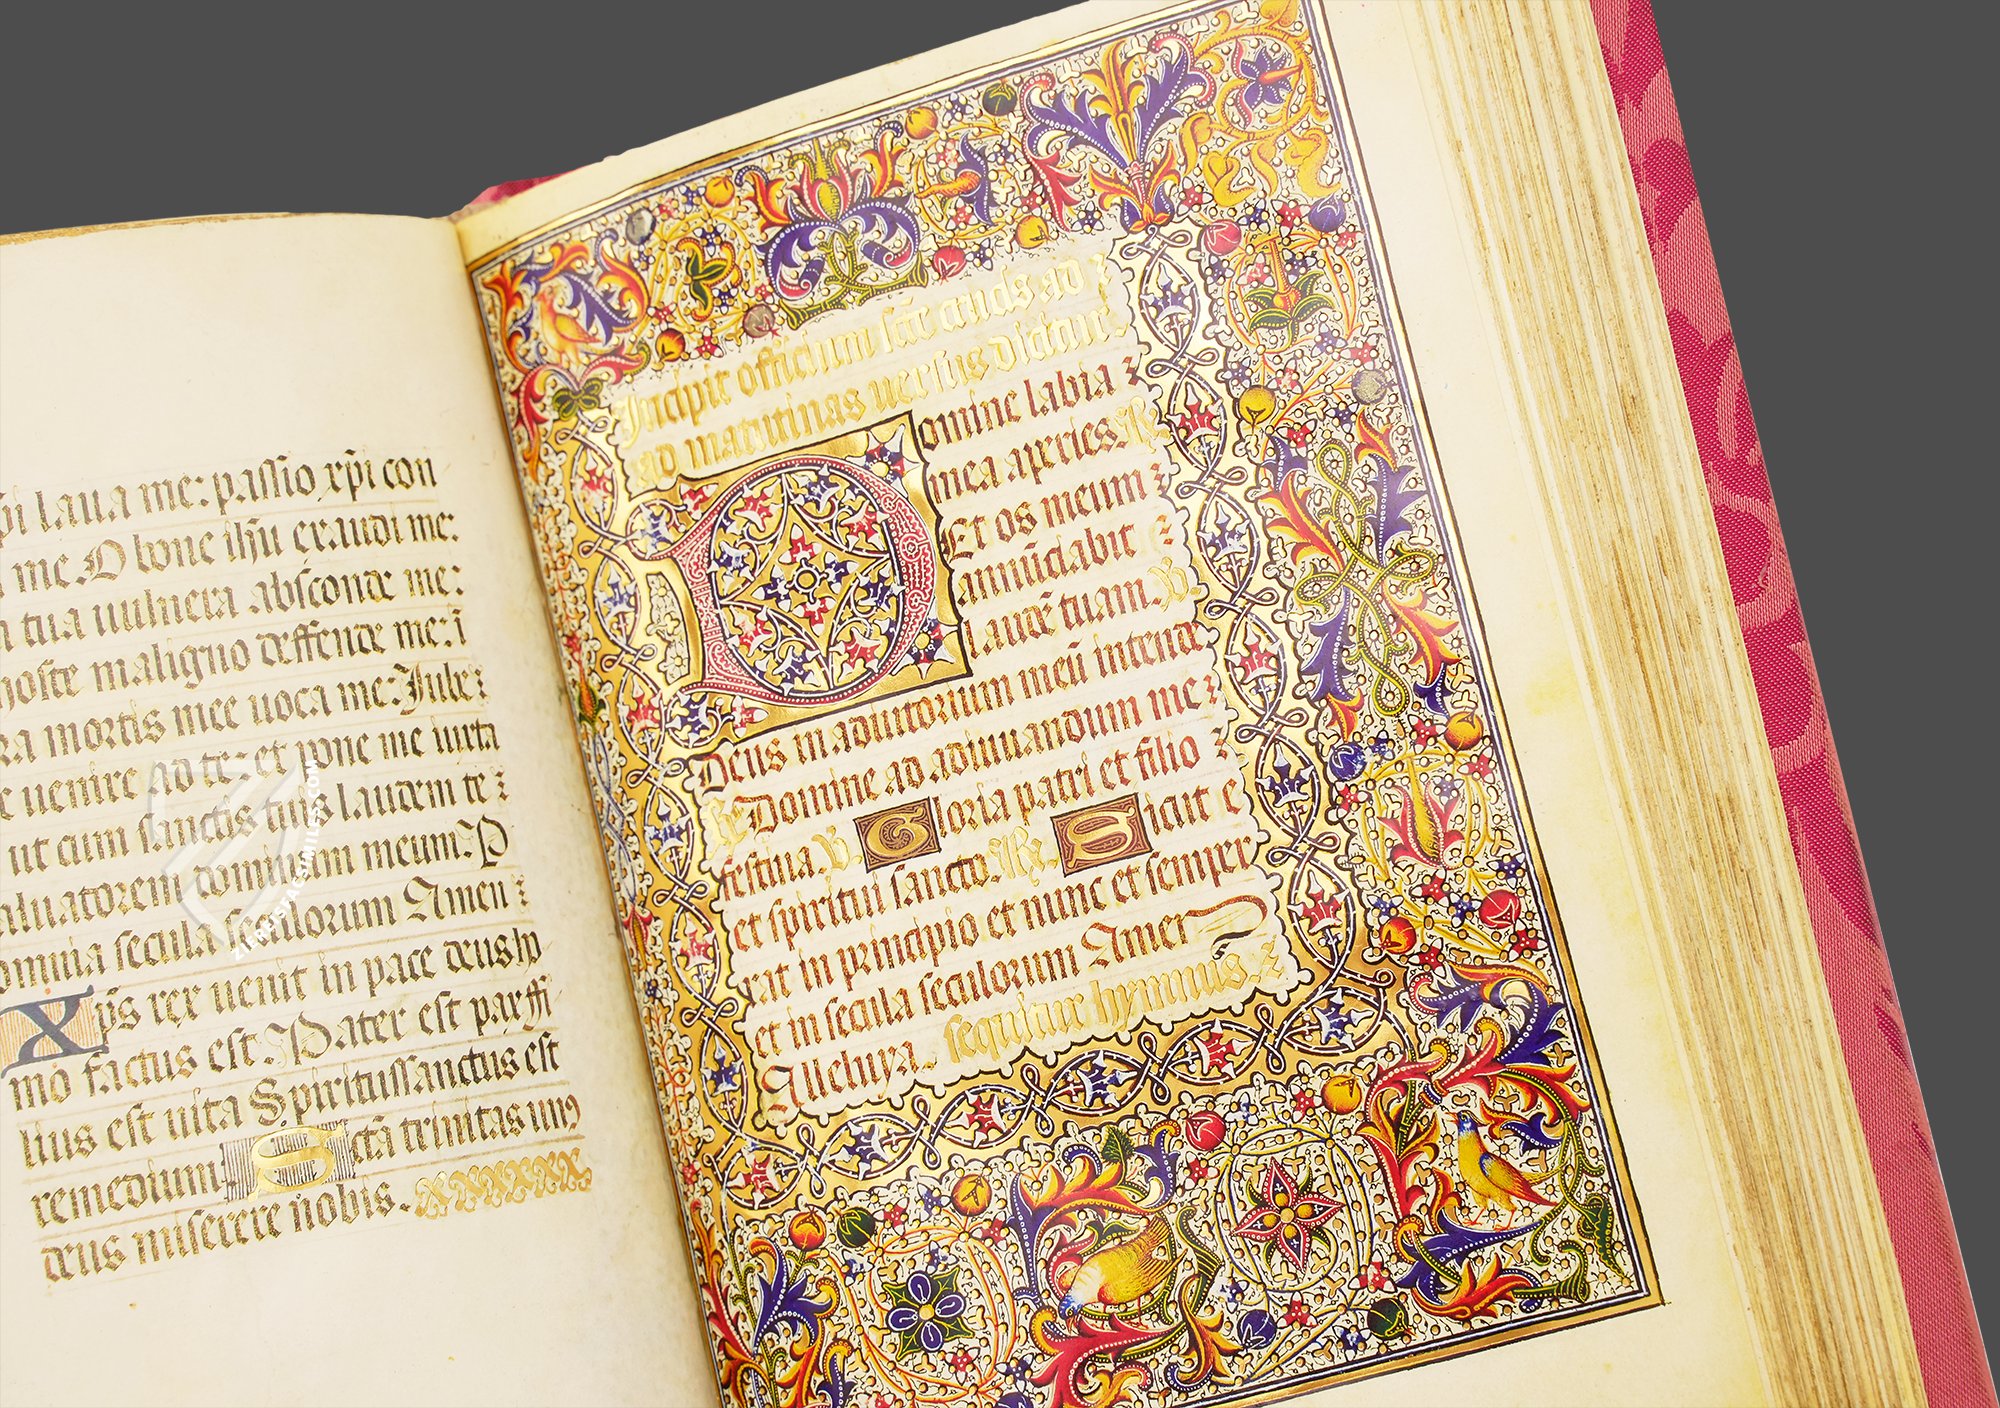 pi laua me: passio xpi con
me. O bone ihu exaudi me:
tua uulnera absconde me:
hoste maligno deffende me: i
ra mortis mee uoca me: Iube
uenire ad te: et pone me iuxta
ut cum sanctis tuis laudem te
saluatorem dominum meum: P
omnia secula seculorum Amen
Xps rex uenit in pace deus ho
mo factus est Pater est par fi
lius est uita Spiritussanctus est
remedium: Sctā trinitas unꝰ
deus miserere nobis.
Incipit officium scē crucis ad
ad matutinas uersus dicitur
Domine labia
mea aperies. ℟.
Et os meum
annūciabit
laudē tuam. ℣.
Deus in adiutorium meū intende
℟. Domine ad adiuuandum me
festina. ℣. Gloria patri et filio
et spiritui sancto. ℟. Sicut e
rat in principio et nunc et semper
et in secula seculorum Amen
Alleluya. sequitur hymnus.
ziereis facsimiles.com